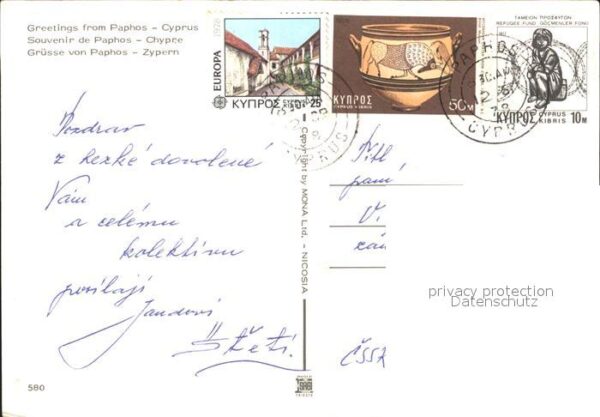 Greetings from Paphos – Cyprus
Souvenir de Paphos – Chypre
Grüsse von Paphos – Zypern
1978
EUROPA
ΚΥΠΡΟΣ
25
ΚΥΠΡΟΣ
CYPRUS KIBRIS
50M
ΤΑΜΕΙΟΝ ΠΡΟΣΦΥΓΩΝ
REFUGEE FUND GÖÇMENLER FONU
ΚΥΠΡΟΣ
CYPRUS
KIBRIS
10M
PAPHOS
CYPRUS
PAPHOS
CYPRUS
Pozdrav
z hezké dovolené
Vám
a celému
kolektivu
posílají
Jandovi
Štětí.
Copyright by MONA Ltd. – NICOSIA
Tit
paní
V.
ČSSR
privacy protection
Datenschutz
580